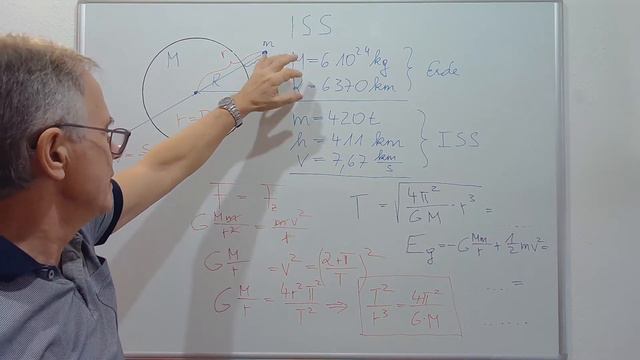 ISS
m
M
r
R
M = 6 10²⁴ kg
R = 6370 km
Erde
m = 420 t
h = 411 km
v = 7,67 km/s
ISS
F = F_z
G Mm/r² = mv²/r
G M/r = v² = (2rπ/T)²
G M/r = 4r²π²/T² ⇒ T²/r³ = 4π²/G·M
T = √(4π²/GM · r³) =
E_g = -G Mm/r + 1/2 mv² =
... =
......